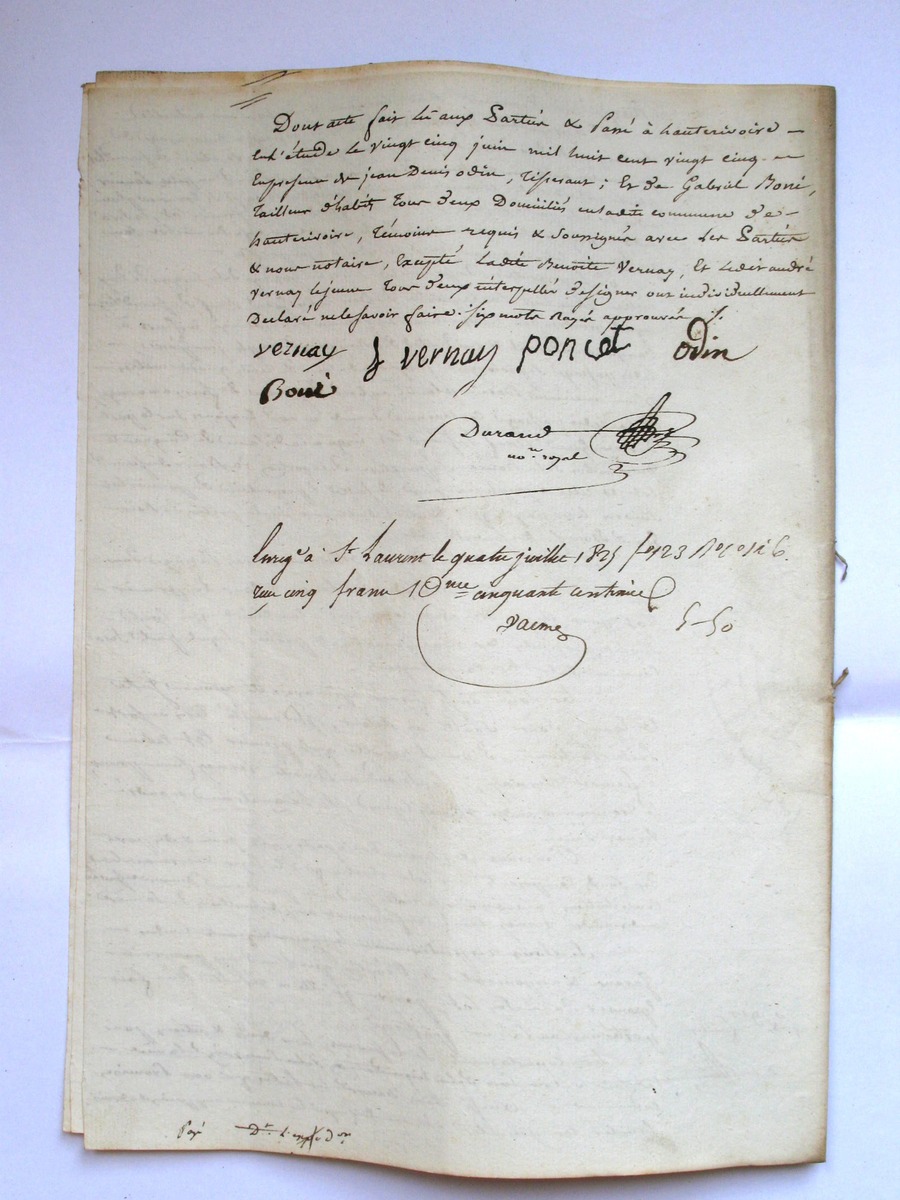 Dont acte fait lû aux Parties & Passé à hauterivoire —
En l'étude le vingt cinq juin mil huit cent vingt cinq. en
En presence de jean Denis odin, Tisserant; Et de Gabriel Boné,
Tailleur d'habits Tous deux Domiciliés en ladite commune de —
hauterivoire, Témoins requis & soussignés avec les Parties
& nous notaire, Excepté Ladite Benoite Vernay, Et ledit andré
Vernay le jeune Tous deux interpellés de signer ont individuellement
Declaré ne le savoir faire. six mots Rayés approuvés ./.
vernay J vernay poncet odin
Boné
Durand
no.re royal
Enreg.é à S.t Laurent le quatre juillet 1825 f.o 123
reçu cinq francs 10.me cinquante centimes
5-50
Payé